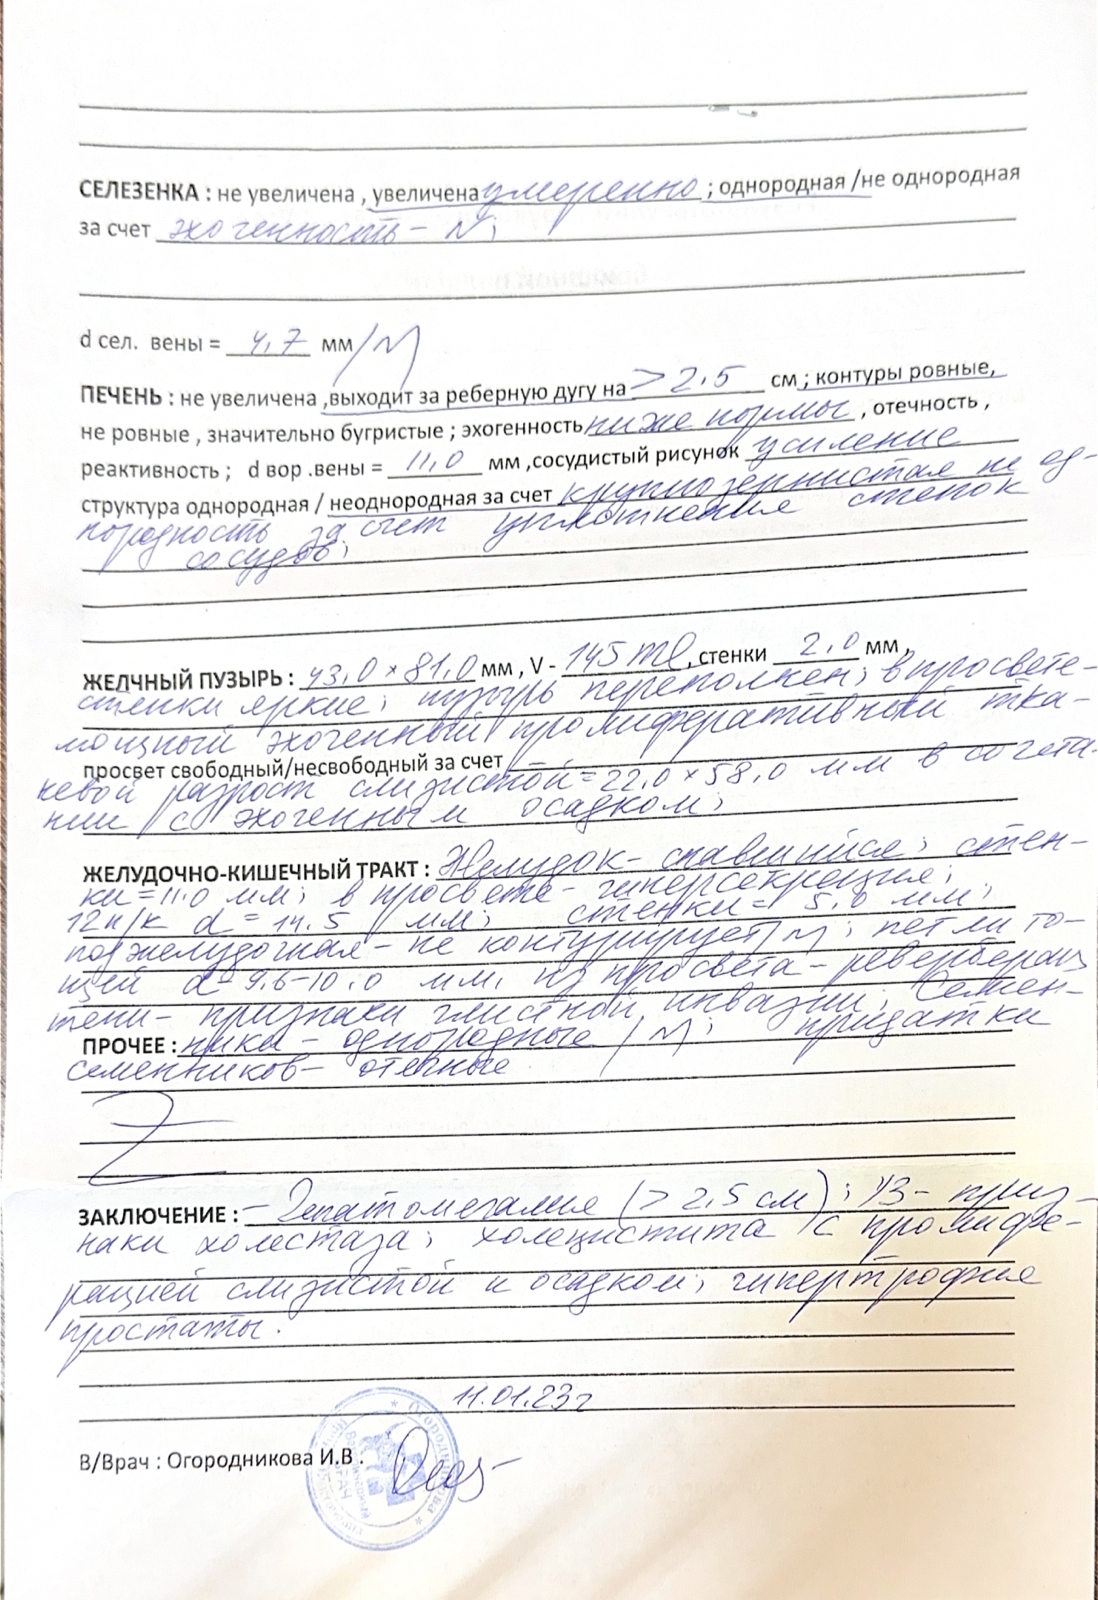 СЕЛЕЗЕНКА : не увеличена , увеличена умеренно ; однородная /не однородная
за счет эхогенность – N;
d сел. вены = 4,7 мм /N
ПЕЧЕНЬ : не увеличена ,выходит за реберную дугу на >2.5 см ; контуры ровные,
не ровные , значительно бугристые ; эхогенность ниже нормы , отечность ,
реактивность ; d вор .вены = 11,0 мм ,сосудистый рисунок усиление
структура однородная / неоднородная за счет крупнозернистая не од-
нородность за счет уплотнения стенок
сосудов;
ЖЕЛЧНЫЙ ПУЗЫРЬ : 43,0 × 81,0 мм , V - 145 ml , стенки 2,0 мм ,
стенки яркие; пузырь переполнен; в просвете-
мощный эхогенный пролиферативный тка-
просвет свободный/несвободный за счет
невой разрост слизистой = 22,0 × 58,0 мм в сочета-
нии с эхогенным осадком;
ЖЕЛУДОЧНО-КИШЕЧНЫЙ ТРАКТ : Желудок - спавшийся; стен-
ки = 11,0 мм; в просвете - гиперсекреция;
12п/к d = 14.5 мм; стенки = 5,0 мм;
поджелудочная - не контурирует/N; петли то-
щей d = 9,6-10,0 мм, из просвета - реверберац
тени - признаки глистной инвазии; Семен-
ПРОЧЕЕ : ники - однородные /N; придатки
семенников - отечные
ЗАКЛЮЧЕНИЕ : – Гепатомегалия (> 2,5 см); УЗ - приз-
наки холестаза; холецистита с пролифе-
рацией слизистой и осадком; гипертрофия
простаты.
11.01.23 г
В/Врач : Огородникова И.В .